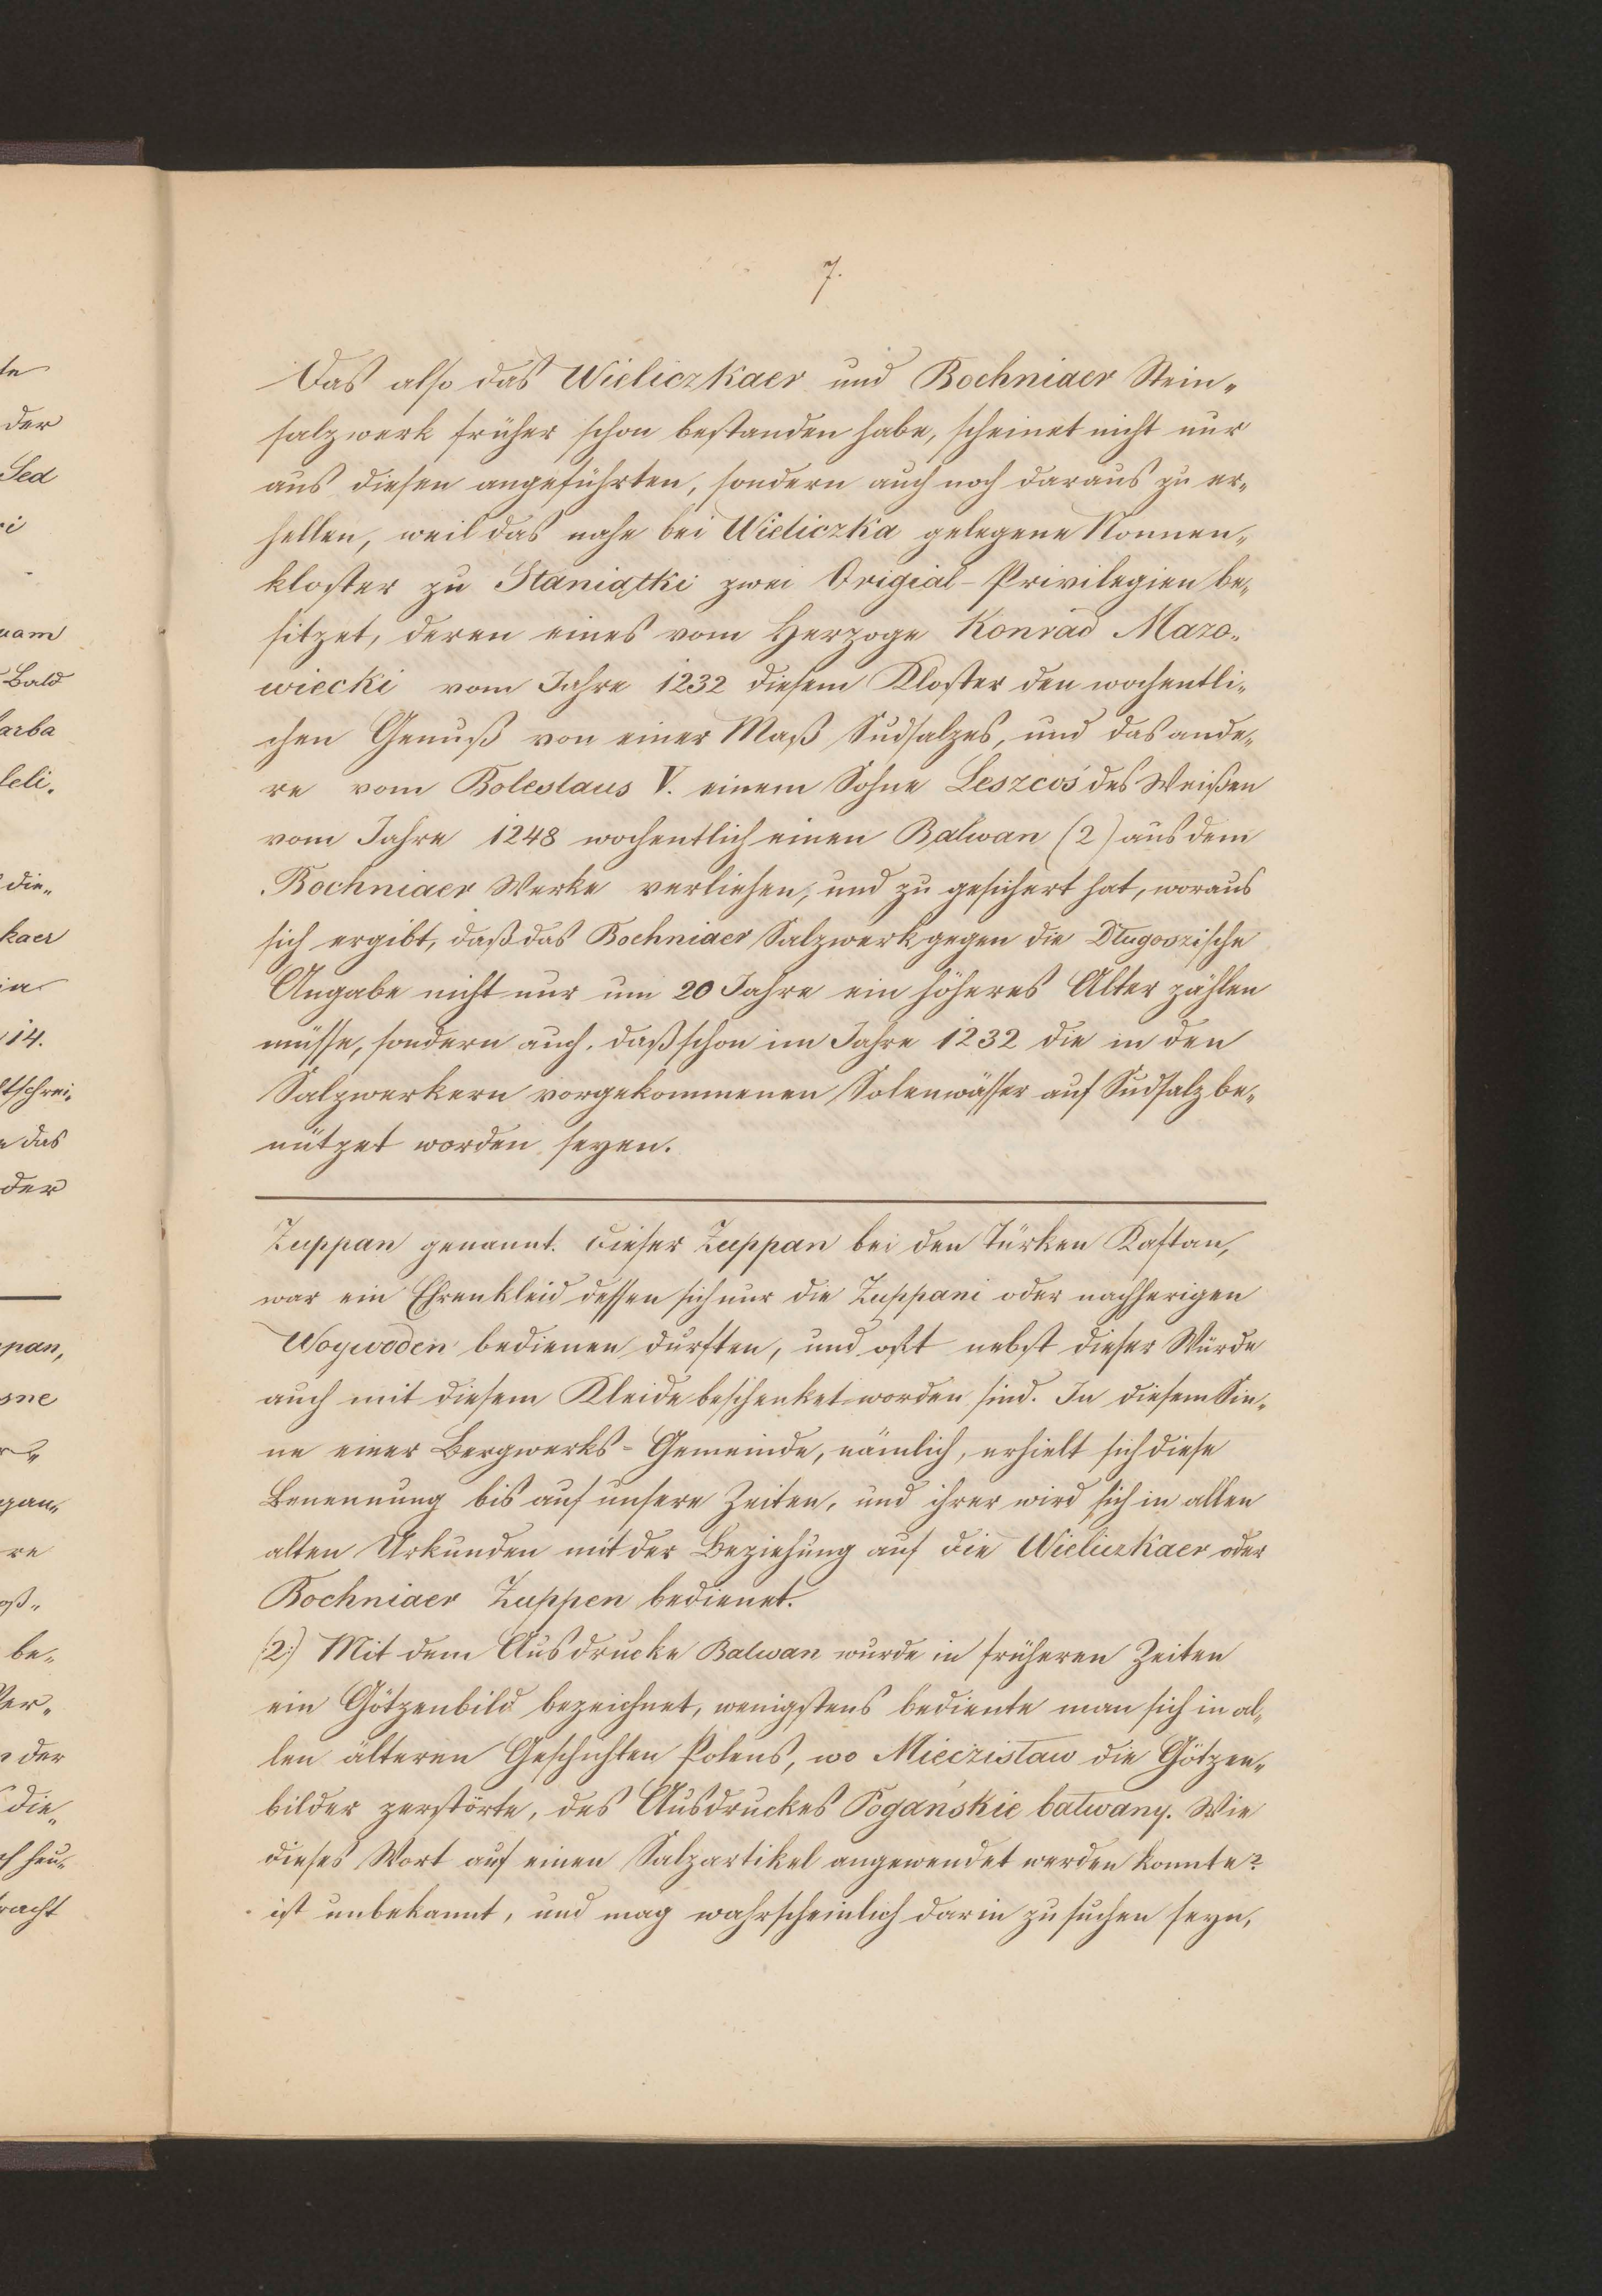 7.
Das also das Wieliczkaer und Bochniaer Stein-
salzwerk früher schon bestanden habe, scheinet nicht nur
aus diesen angeführten, sondern auch noch daraus zu er-
hellen, weil das nahe bei Wieliczka gelegene Nonnen-
kloster zu Staniątki zwei Origial-Privilegien be-
sitzet, deren eines vom Herzoge Konrad Mazo-
wiecki vom Jahre 1232 diesem Kloster den wochentli-
chen Genuß von einer Maß Sudsalzes, und das ande-
re vom Boleslaus V. einem Sohne Leszcos des Weißen
vom Jahre 1248 wochentlich einen Balwan (2) aus dem
Bochniaer Werke verliehen, und zu gesichert hat, woraus
sich ergibt, daß das Bochniaer Salzwerk gegen die Długoszische
Angabe nicht nur um 20 Jahre ein höheres Alter zählen
müsse, sondern auch, daß schon im Jahre 1232 die in den
Salzwerkern vorgekommenen Solenwässer auf Sudsalz be-
nützet worden seyen.
Zuppan genannt. Dieser Zuppan bei den Türken Kaftan,
war ein Ehrenkleid dessen sich nur die Zuppani oder nachherigen
Woywoden bedienen durften, und oft nebst dieser Würde
auch mit diesem Kleide beschenket worden sind. In diesem Sin-
ne einer Bergwerks-Gemeinde, nämlich, erhielt sich diese
Benennung bis auf unsere Zeiten, und ihrer wird sich in allen
alten Urkunden mit der Beziehung auf die Wieliczkaer oder
Bochniaer Zuppen bedienet.
(2.) Mit dem Ausdrucke Balwan wurde in früheren Zeiten
ein Götzenbild bezeichnet, wenigstens bediente man sich in al-
len älteren Geschichten Polens, wo Mieczisław die Götzen-
bilder zerstörte, des Ausdruckes Pogańskie bałwany. Wie
dieses Wort auf einen Salzartikel angewendet werden konnte?
ist unbekannt, und mag wahrscheinlich darin zu suchen seyn,